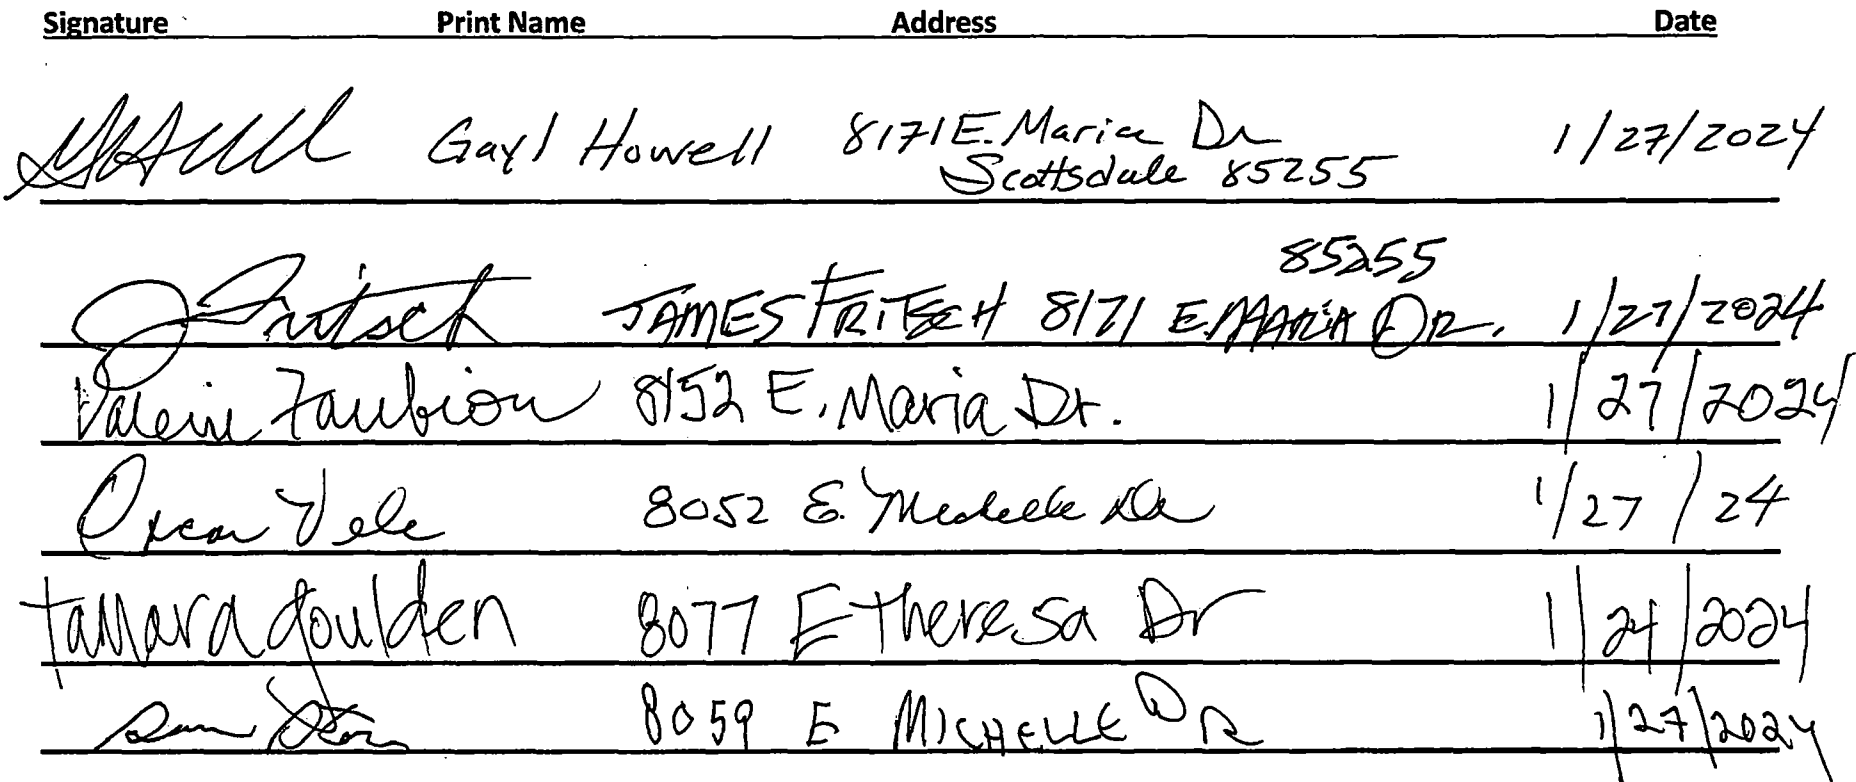 Signature Print Name Address Date
Gayl Howell 8171 E. Maria Dr 1/27/2024
Scottsdale 85255
85255
J Fritsch JAMES FRITSCH 8171 E. MARIA DR. 1/27/2024
Valerie Faubion 8152 E. Maria Dr. 1/27/2024
Oscar Vele 8052 E. Michelle Dr 1/27/24
tamara Goulden 8077 E Theresa Dr 1/24/2024
8059 E MICHELLE DR 1/27/2024